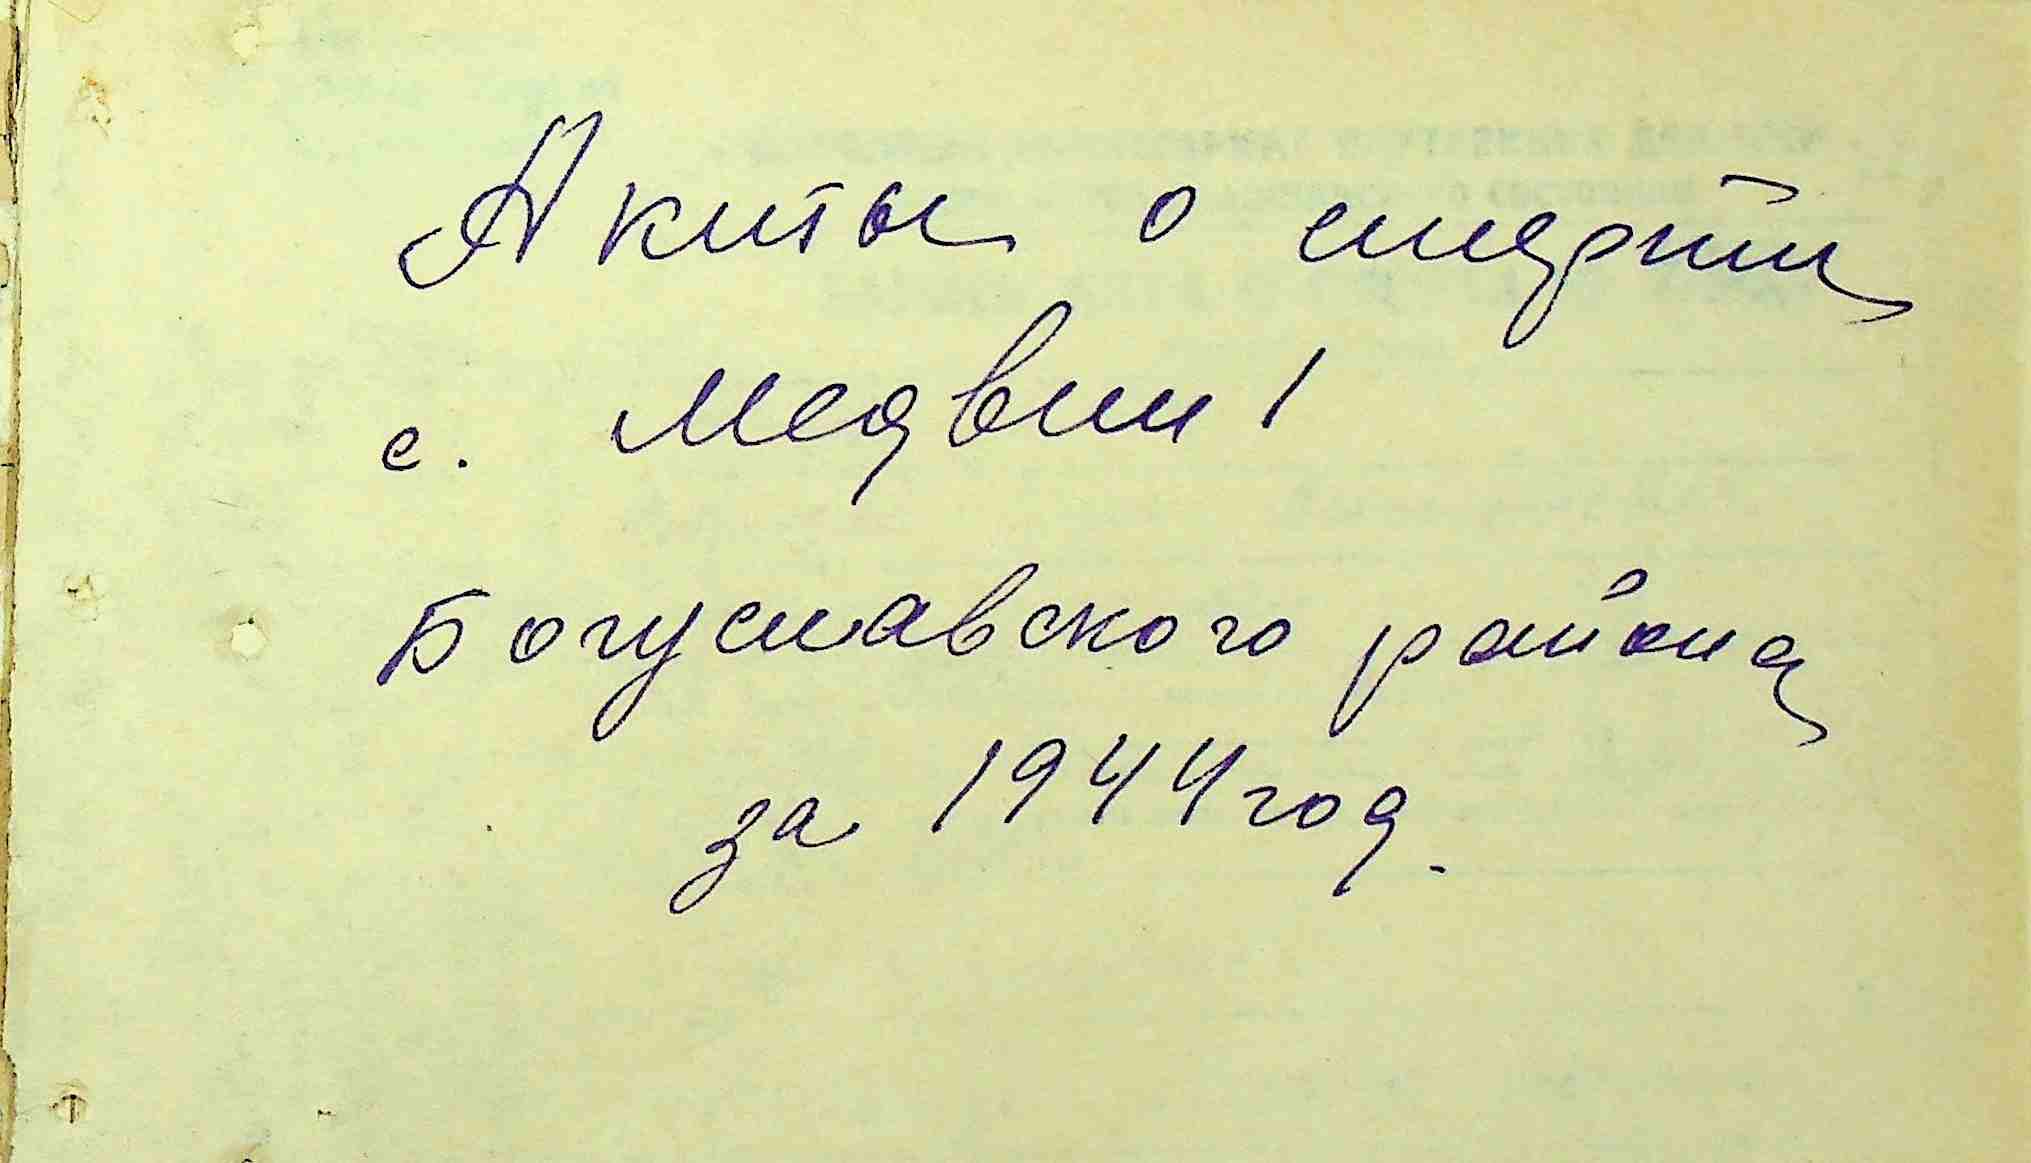 Акты о смерти
с. Медвин 1
Богуславского района
за 1944 год.